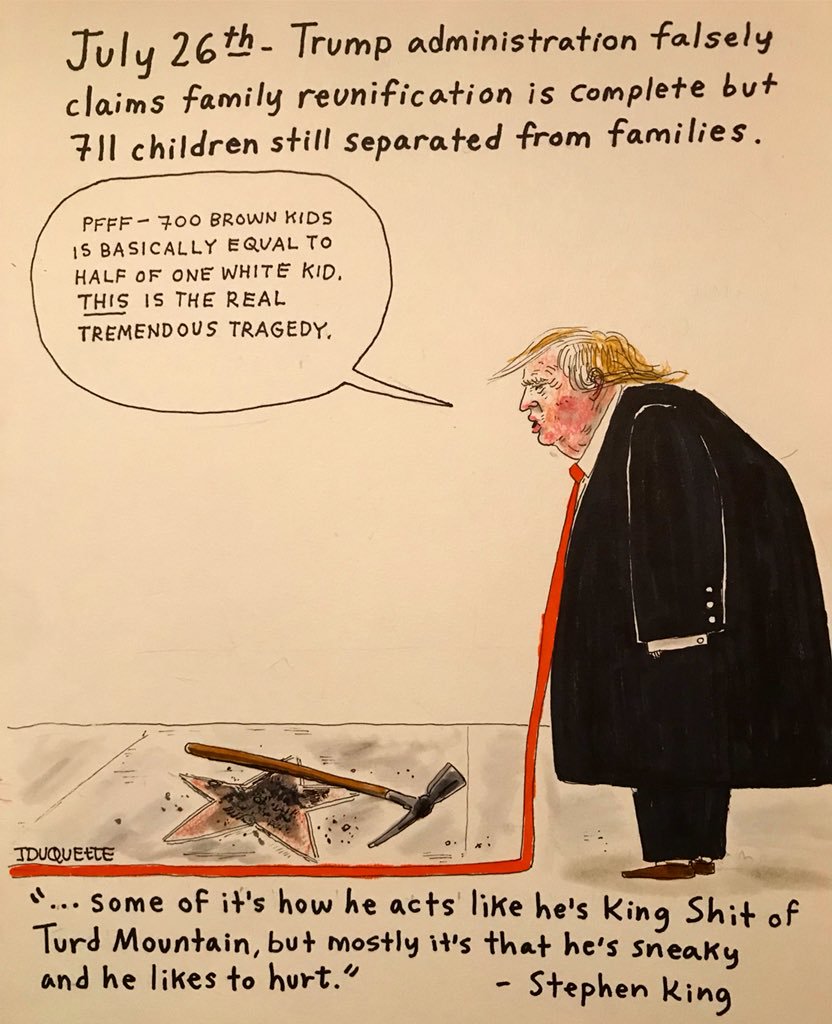 July 26th - Trump administration falsely
claims family reunification is complete but
711 children still separated from families.
PFFF - 700 BROWN KIDS
IS BASICALLY EQUAL TO
HALF OF ONE WHITE KID.
THIS IS THE REAL
TREMENDOUS TRAGEDY.
JDUQUETTE
"... some of it's how he acts like he's King Shit of
Turd Mountain, but mostly it's that he's sneaky
and he likes to hurt."
- Stephen King